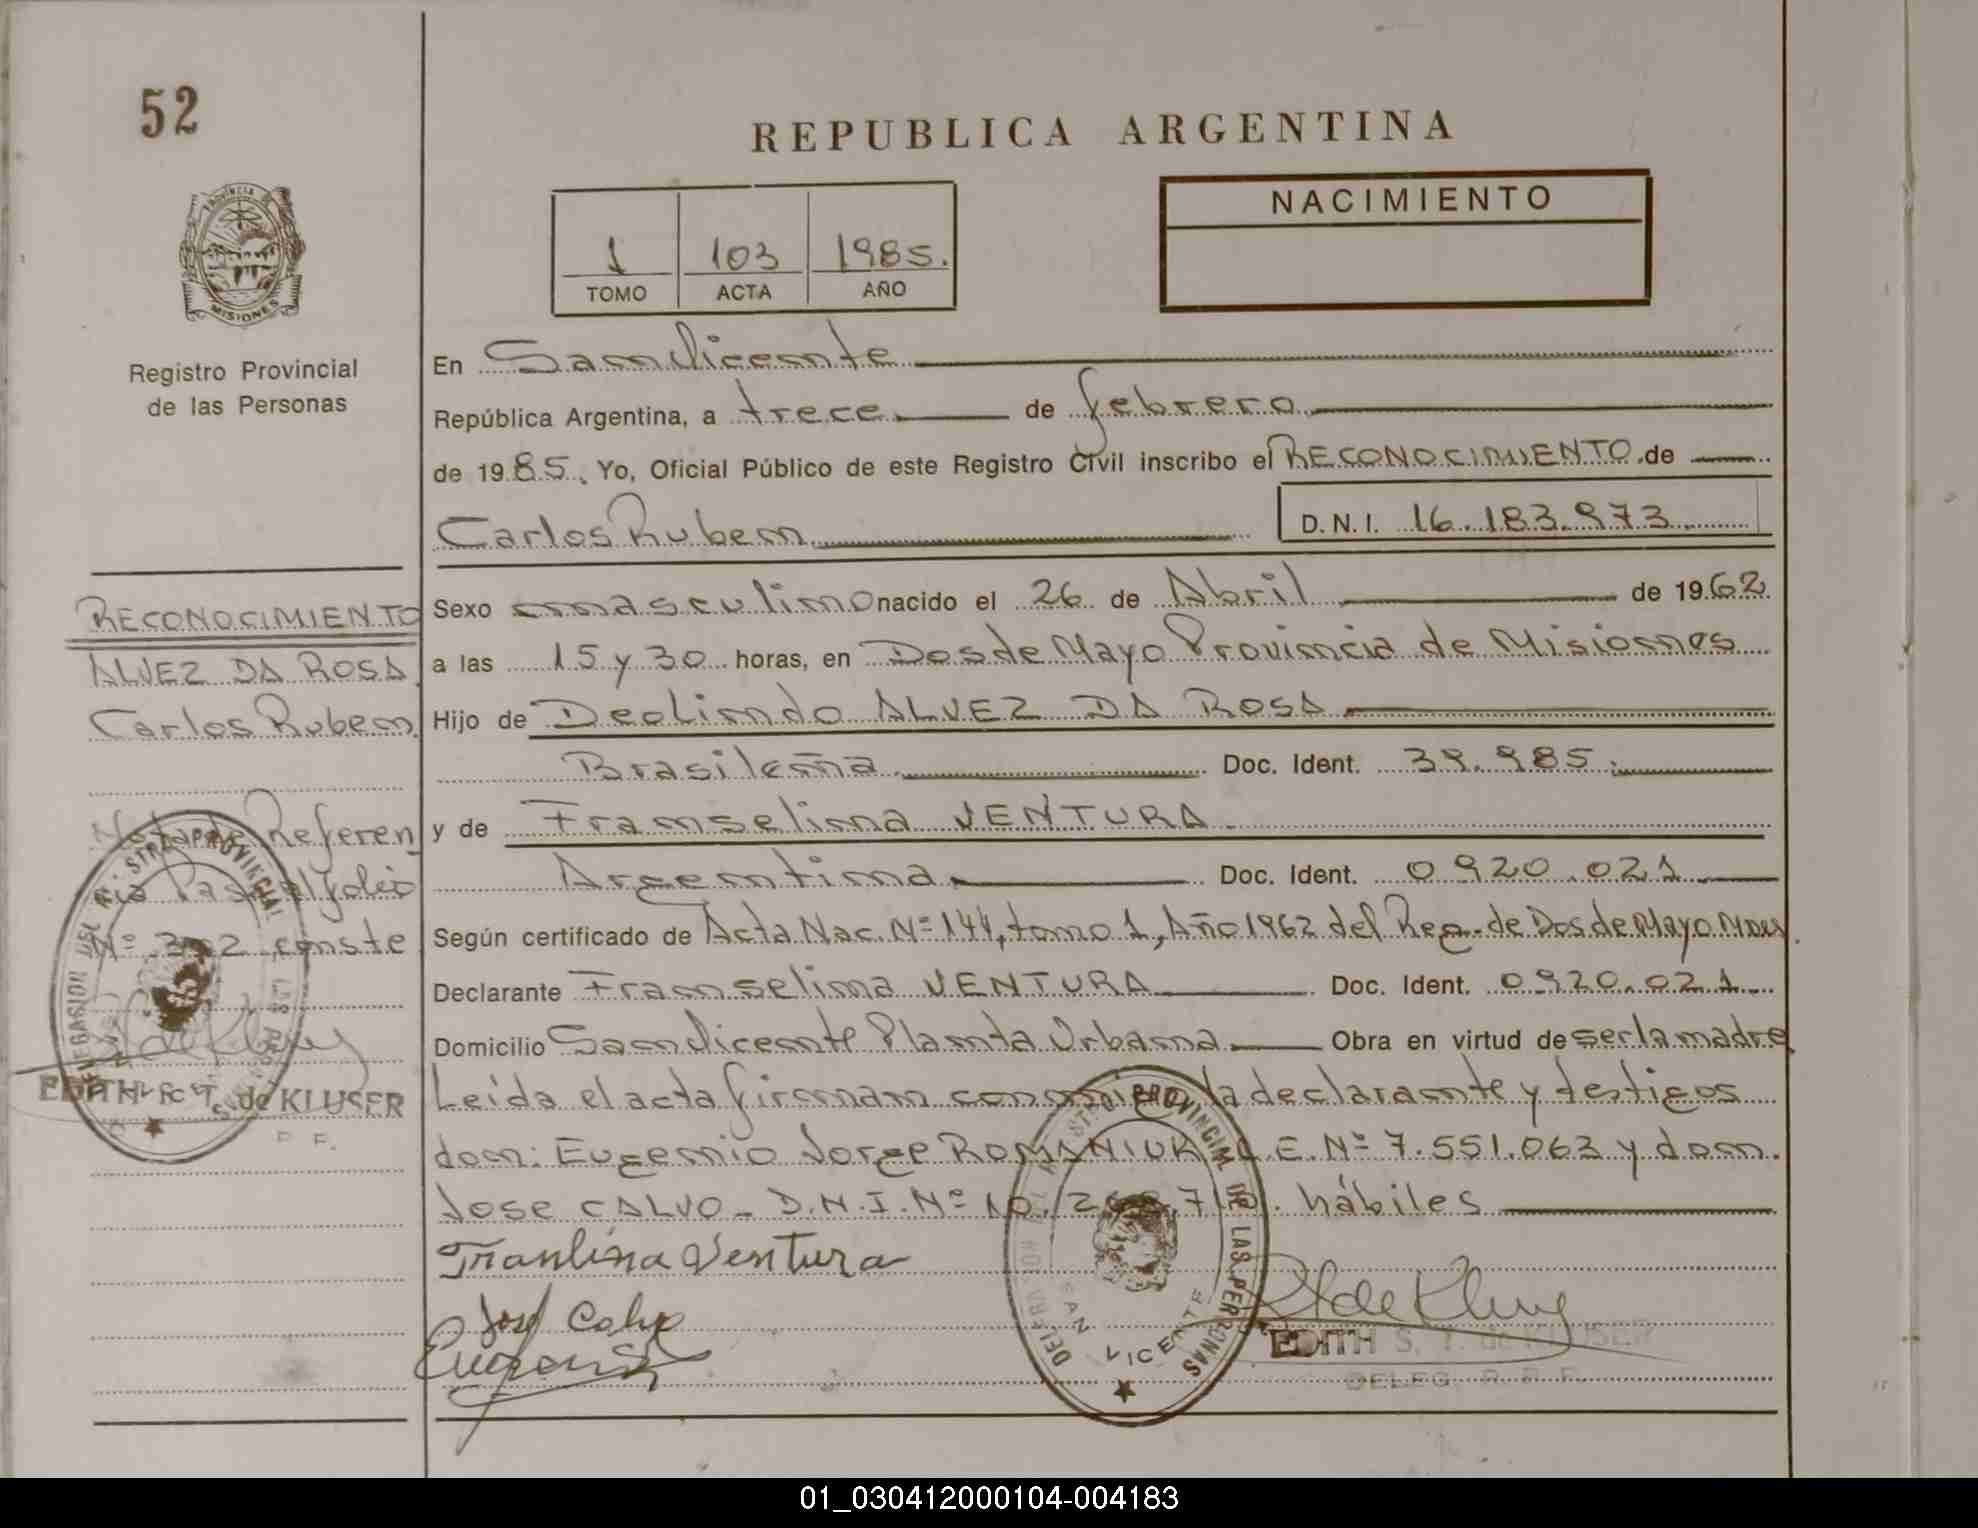 52
REPUBLICA ARGENTINA
PROVINCIA
MISIONES
Registro Provincial
de las Personas
1 103 1985.
TOMO ACTA AÑO
NACIMIENTO
En San Vicente
República Argentina, a trece de febrero
de 1985, Yo, Oficial Público de este Registro Civil inscribo el RECONOCIMIENTO de
Carlos Ruben D.N.I. 16.183.973
Sexo masculino nacido el 26 de Abril de 1962
a las 15 y 30 horas, en Dos de Mayo Provincia de Misiones
Hijo de Deolindo ALVEZ DA ROSA
Brasileña Doc. Ident. 39.985
y de Franselina VENTURA
Argentina Doc. Ident. 0.920.021
Según certificado de Acta Nac. Nº 144, tomo 1, Año 1962 del Reg. de Dos de Mayo Mnes.
Declarante Franselina VENTURA Doc. Ident. 0.920.021
Domicilio San Vicente Planta Urbana Obra en virtud de ser la madre
Leida el acta firman conmigo la declarante y testigos
don: Eugenio Jorge ROMANIUK L.E. Nº 7.551.063 y don.
Jose CALVO - D.N.I. Nº 10. hábiles
Franlina Ventura
José Calvo
EDITH S. T. de KLUSER
DELEG. R. P. P.
PROVINCIAL DE LAS PERSONAS
SAN VICENTE
RECONOCIMIENTO
ALVEZ DA ROSA
Carlos Ruben
Nota de Referen
cia Pasa al folio
Nº 302 conste
PROVINCIAL
EDITH de KLUSER
01_030412000104-004183